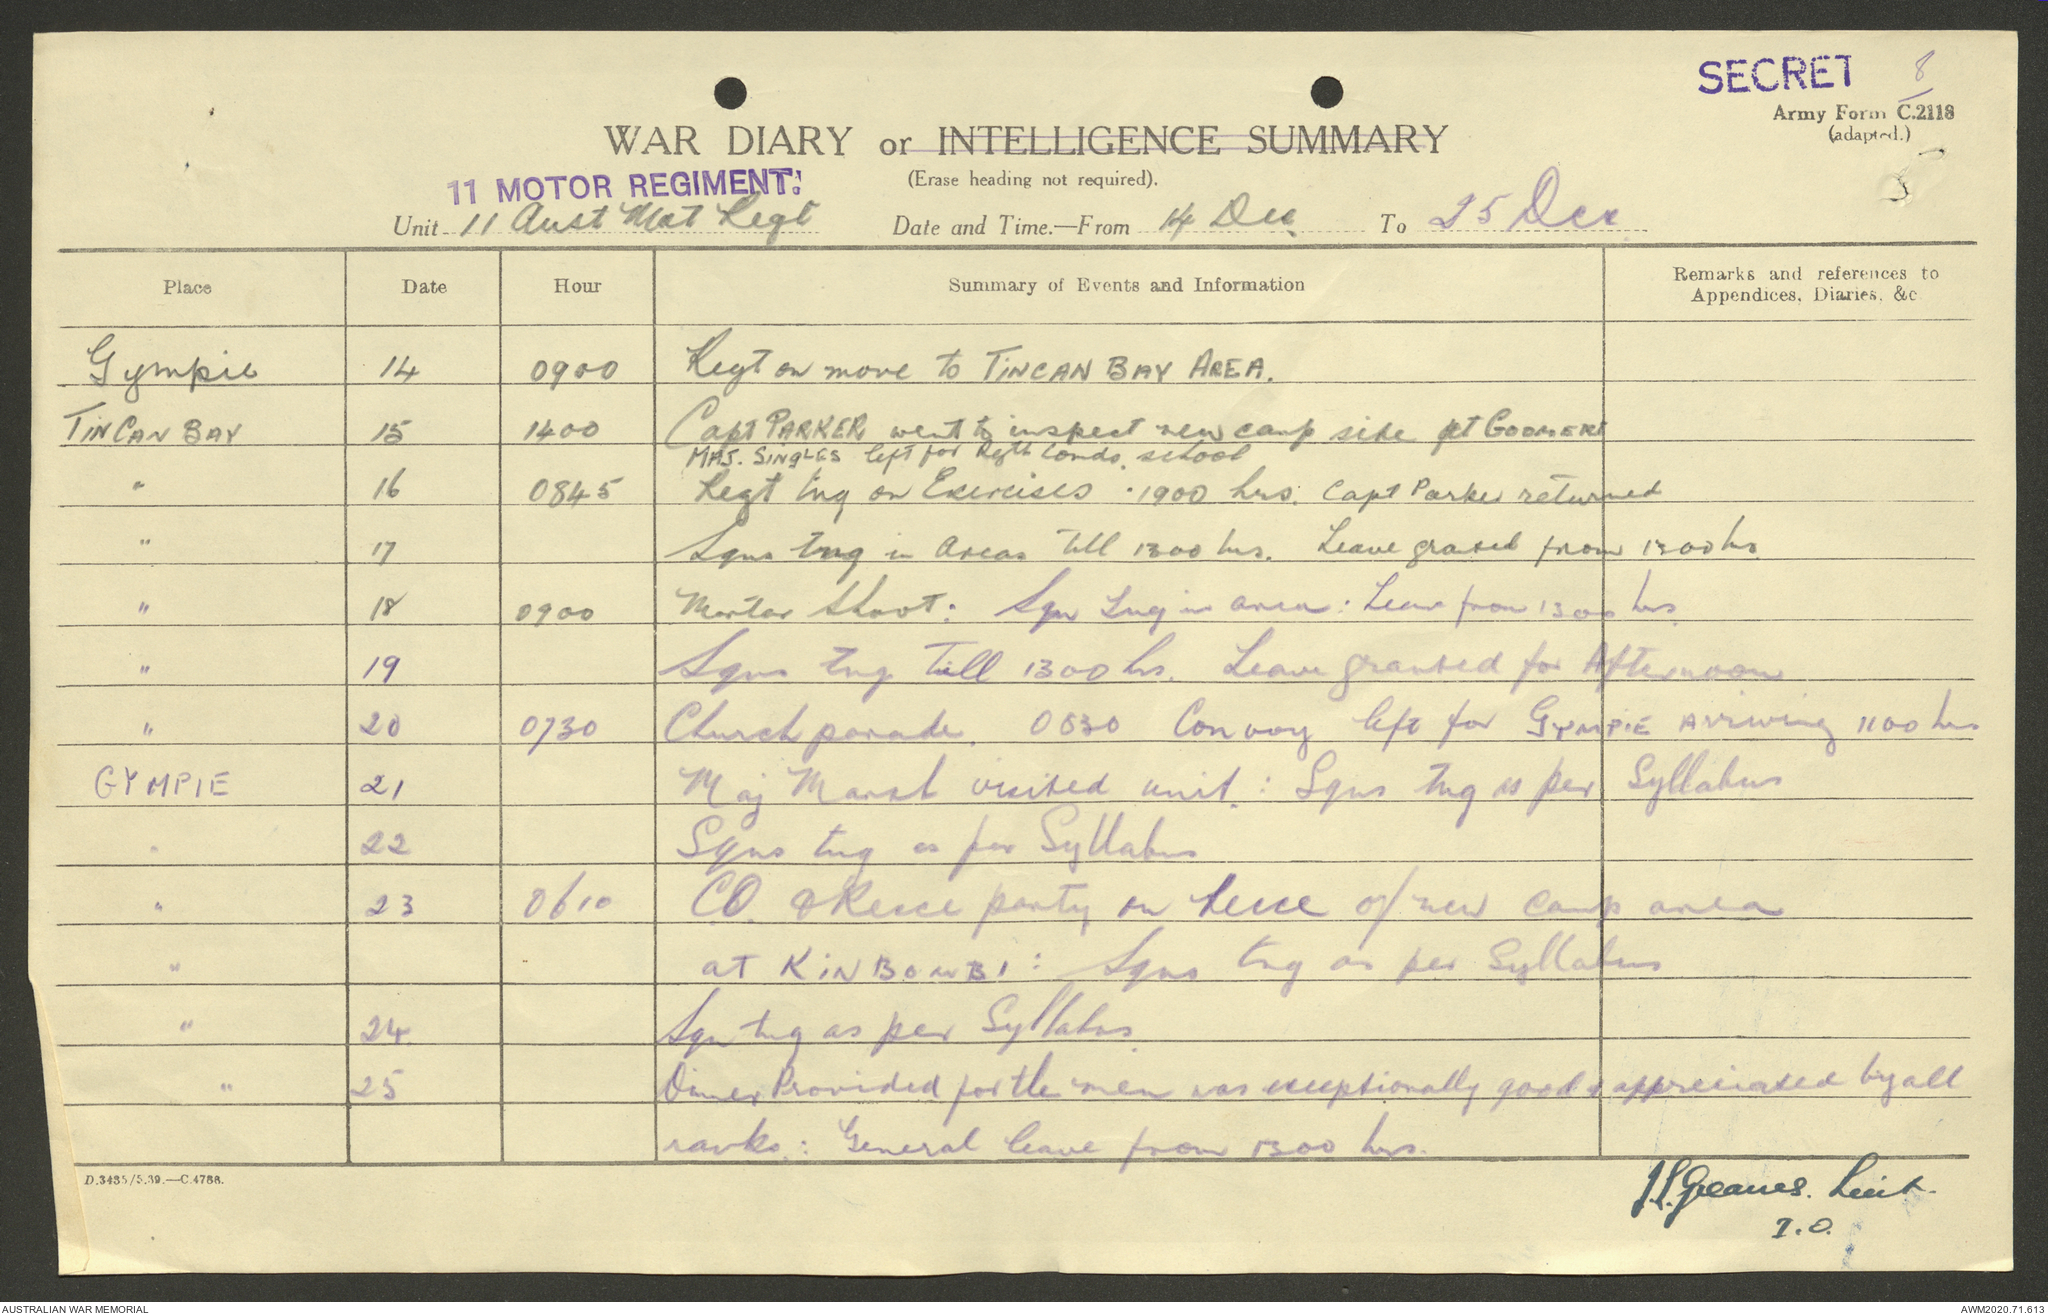 SECRET 8
Army Form C.2118
(adapted.)
WAR DIARY or INTELLIGENCE SUMMARY
(Erase heading not required).
11 MOTOR REGIMENT.
Unit 11 Aust Mot Regt Date and Time.—From 14 Dec To 25 Dec
Place Date Hour Summary of Events and Information Remarks and references to Appendices, Diaries, &c
Gympie 14 0900 Regt on move to TINCAN BAY AREA.
TINCAN BAY 15 1400 Capt PARKER went to inspect new camp site at GOOMERI
MAJ. SINGLES left for Regtl Comds. school
" 16 0845 Regt tng on Exercises . 1900 hrs. Capt Parker returned
" 17 Sqns tng in Areas till 1300 hrs. Leave granted from 1300 hrs
" 18 0900 Mortar Shoot. Sqn Tng in area : Leave from 1300 hrs.
" 19 Sqns tng Till 1300 hrs. Leave granted for Afternoon
" 20 0730 Church parade. 0830 Convoy left for GYMPIE Arriving 1100 hrs
GYMPIE 21 Maj visited unit. : Sqns tng as per Syllabus
" 22 Sqns tng as per Syllabus
" 23 0610 CO. & Recce party on Recce of new camp area
" at KINBOMBI : Sqns tng as per Syllabus
" 24 Sqn tng as per Syllabus.
" 25 Dinner Provided for the men was exceptionally good & appreciated by all
ranks. : General leave from 1300 hrs.
D.3435/5.39.—C.4788.
Greaves. Lieut.
I.O.
AUSTRALIAN WAR MEMORIAL AWM2020.71.613